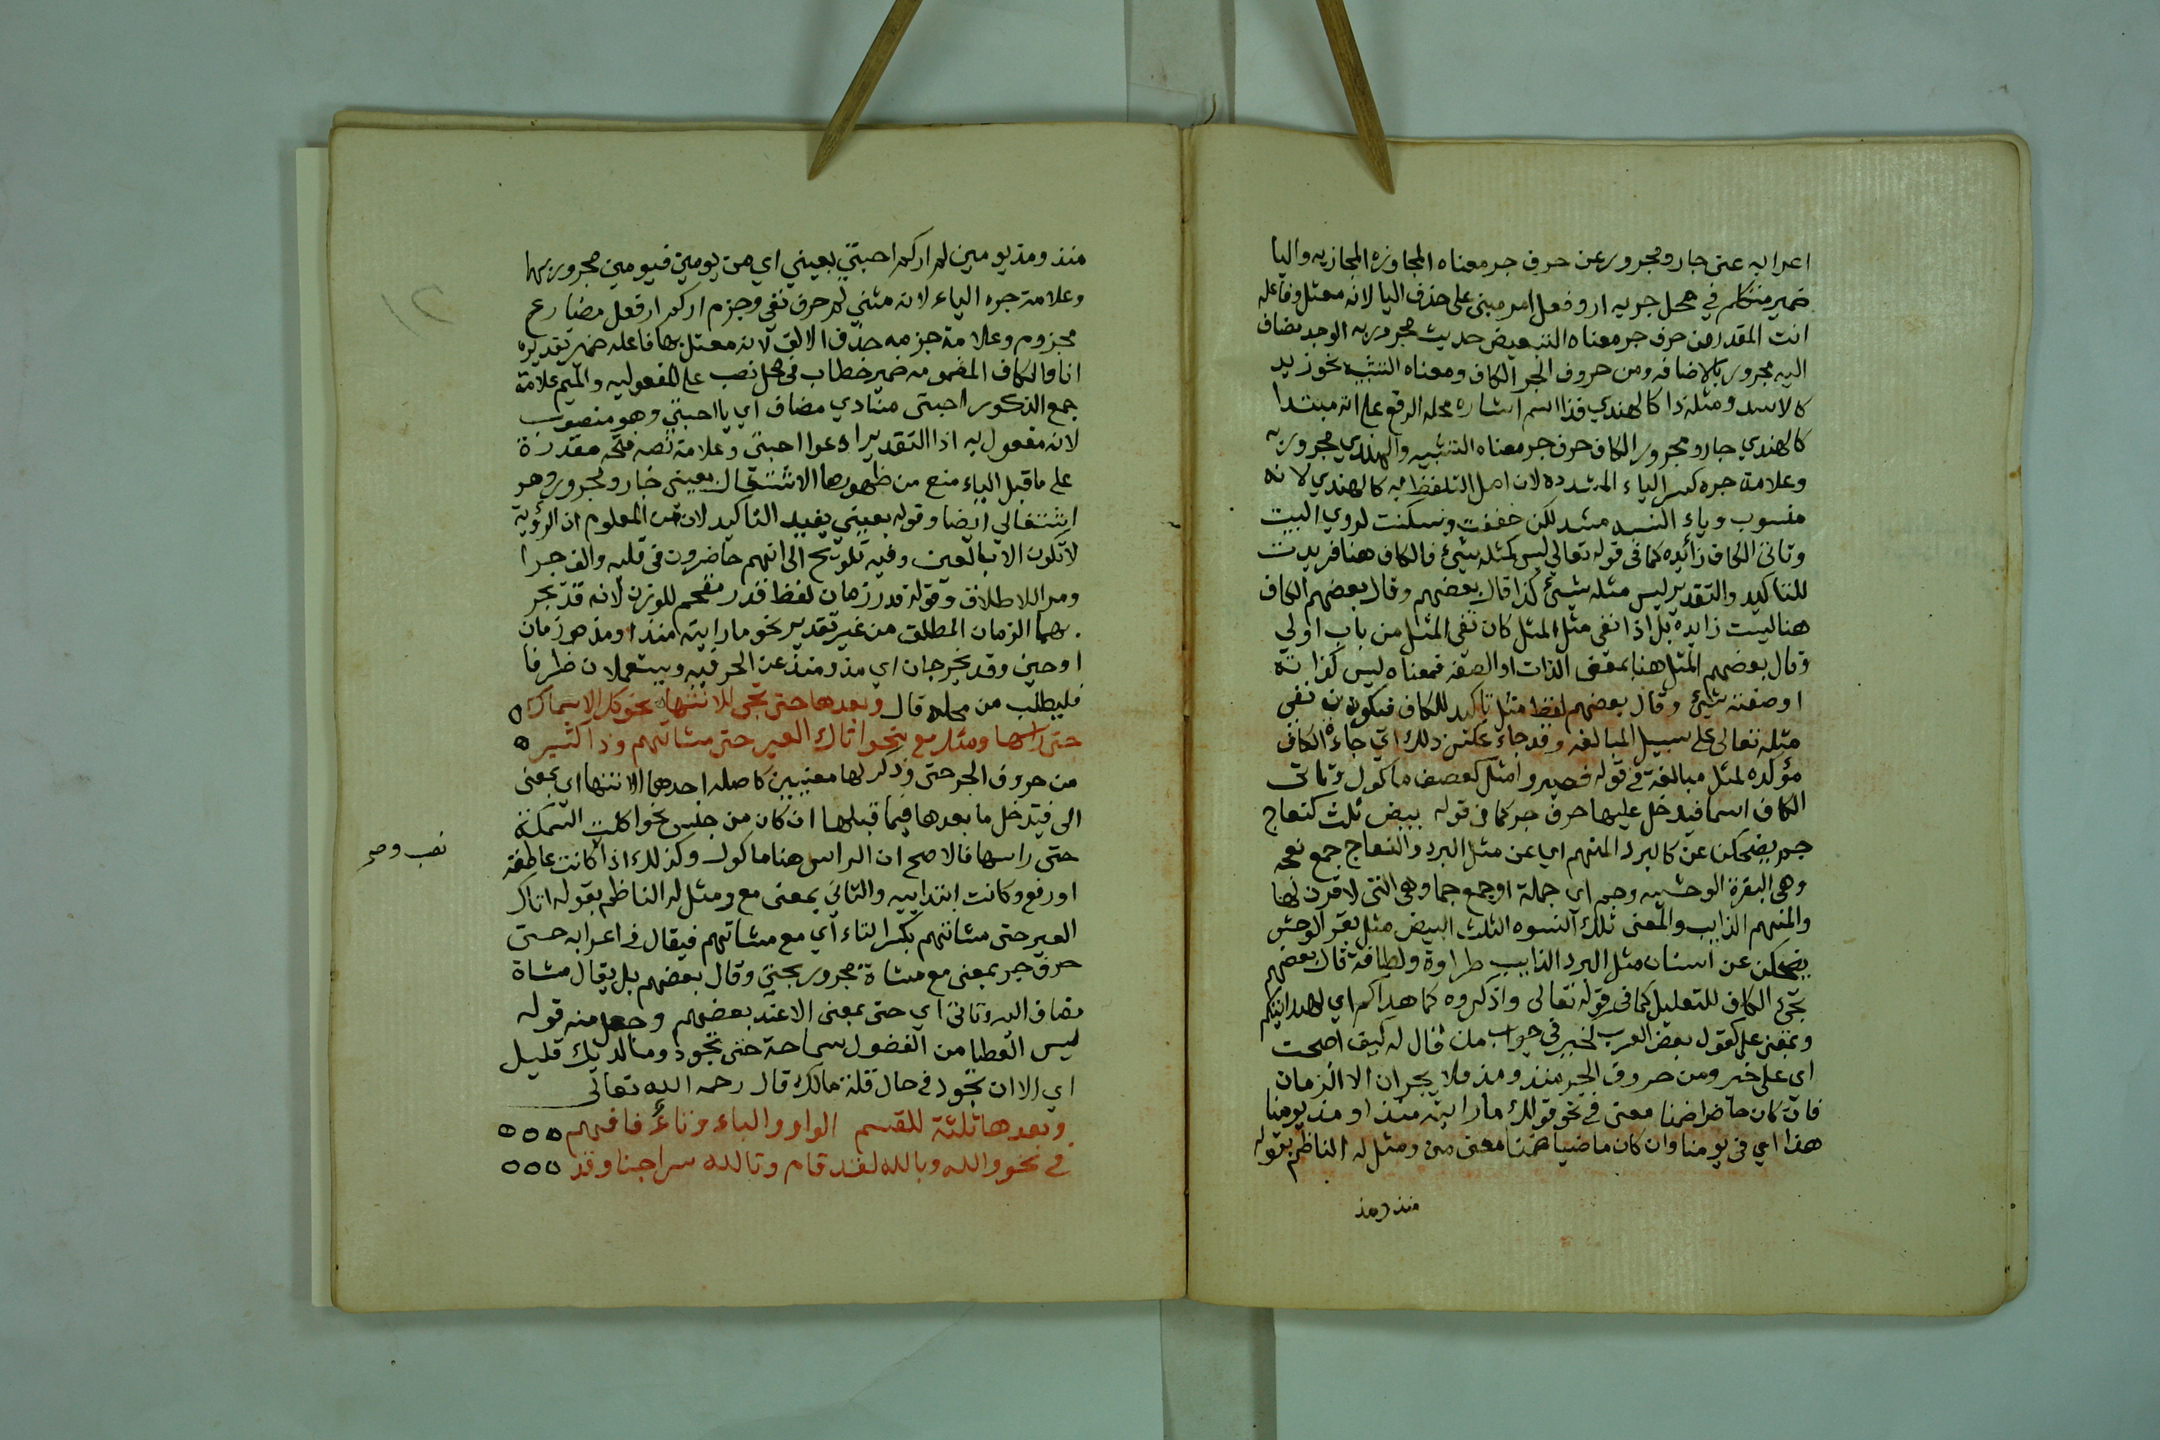 اعرابه عنى جار ومجرور عن حرف جر معناه المجاوزه المجازيه واليا
ضمير متكلم في محل جر به ارو فعل امر مبنى على حذف اليا لانه معتل وفاعله
انت المقدر من حرف جر معناه التبعيض حديث مجرور به الوجد مضاف
اليه مجرور بالاضافه ومن حروف الجر الكاف ومعناه التشبيه نحو زيد
كالاسد ومثله ذا كالهندي فذا اسم اشاره محله الرفع على انه مبتدا
كالهندي جار ومجرور الكاف حرف جر معناه التشبيه والهندي مجرور به
وعلامة جره كسر الياء المشدده لان اصل التلفظ به كالهندي لانه
منسوب وياء النسبه مشدد لكن خففت وسكنت لروي البيت
وتاتى الكاف زائيده كما في قوله تعالى ليس كمثله شيئ فالكاف هنا فزيدت
للتاكيد والتقدير ليس مثله شيئ كذا قال بعضهم وقال بعضهم الكاف
هنا ليست زايدة بل اذا نفى مثل المثل كان نفى المثل من باب اولي
وقال بعضهم المثل هنا بمعنى الذات او الصفه فمعناه ليس كذاته
او صفته شيئ وقال بعضهم لفظ مثل تاكيد للكاف فيكون نفى
مثله تعالى على سبيل المبالغه وقد جاء عكس ذلك اي جاءة الكاف
مؤكده لمثل مبالغة في قوله فصيروا مثل كعصف ماكول وتاتى
الكاف اسما فيدخل عليها حرف جر كما في قوله بيض ثلث كنعاج
جم يضحكن عن كالبرد المنهم اي عن مثل البرد والنعاج جمع نعجه
وهى البقرة الوحشيه وجم اى جملة او جمع جما وهى التى لا قرن لها
والمنهم الذايب والمعنى تلك النسوه الثلث البيض مثل بقر الوحش
يضحكن عن اسنان مثل البرد الذايب طراوة ولطافة قال بعضهم
تجئ الكاف للتعليل كما في قوله تعالى واذكروه كما هداكم اي لهدايتكم
وبمعنى على كقول بعض العرب لخير في جواب من قال له كيف اصبحت
اي على خير ومن حروف الجر منذ ومذ ولا يجران الا الزمان
فان كان حاضرا ضمنا معنى في نحو قولك ما رايته منذ او مذ يومنا
هذا اي في يومنا وان كان ماضيا ضمنا معنى من ومثل له الناظم بقوله
منذ ومذ
منذ ومذ يومين لم اركم احبتي بعيني اي من يومين فيومين مجرور بها
وعلامة جره الياء لانه مثنى لم حرف نفي وجزم اركم ار فعل مضارع
مجزوم وعلامة جزمه حذف الالف لانه معتل بها فاعله ضمير تقديره
انا والكاف المضمومه ضمير خطاب في محل نصب على المفعوليه والميم علامة
جمع الذكور احبتى منادي مضاف اي يا احبتي وهو منصوب
لانه مفعول به اذا التقدير ادعوا احبتى وعلامة نصبه فتحه مقدرة
على ما قبل الياء منع من ظهورها الاشتغال بعينى جار ومجرور وهو
اشتغالي ايضا وقوله بعيني يفيد التاكيد لان من المعلوم ان الرؤية
لا تكون الا بالعين وفيه تلويح الى انهم حاضرون في قلبه والف جرا
ومرا للاطلاق وقوله قدر زمان لفظ قدر مفحم للوزن لانه قد يجر
بهما الزمان المطلق من غير تقدير نحو ما رايته منذ او مذ هو زمان
او حين وقد يخرجان اي مذ ومنذ عن الحرفيه ويستعملان ظرفا
فليطلب من محله قال وبعدها حتى تجى للانتهاء نحو كل الاسماك
حتى راسها ومثل مع نحو اتاك العير حتى مشاتهم وذا كثير
من حروف الجر حتى وذكر لها معنيين كاصله احدهما الانتهاء اي بمعنى
الى فيدخل ما بعدها فيما قبلها ان كان من جنس نحو اكلت السمكة
حتى راسها فالاصح ان الراس هنا ماكول وكذلك اذا كانت عاطفة
او رفع وكانت ابتدايه والثاني بمعنى مع ومثل له الناظم بقوله اتاك
العير حتى مشاتهم بكسر التاء اي مع مشاتهم فيقال في اعرابه حتى
حرف جر بمعنى مع مشاة مجرور بحتى وقال بعضهم بل يقال مشاة
مضاف اليه وتاتى اي حتى بمعنى الا عند بعضهم وجعل منه قوله
ليس العطا من الفضول سماحة حتى تجود وما لديك قليل
اي الا ان تجود في حال قلة مالك قال رحمه الله تعالى
وبعدها ثلثة للقسم الواو والباء وتاء فافهم
في نحو والله وبالله لقد قام وتالله سراجنا وقد
نصب وصح